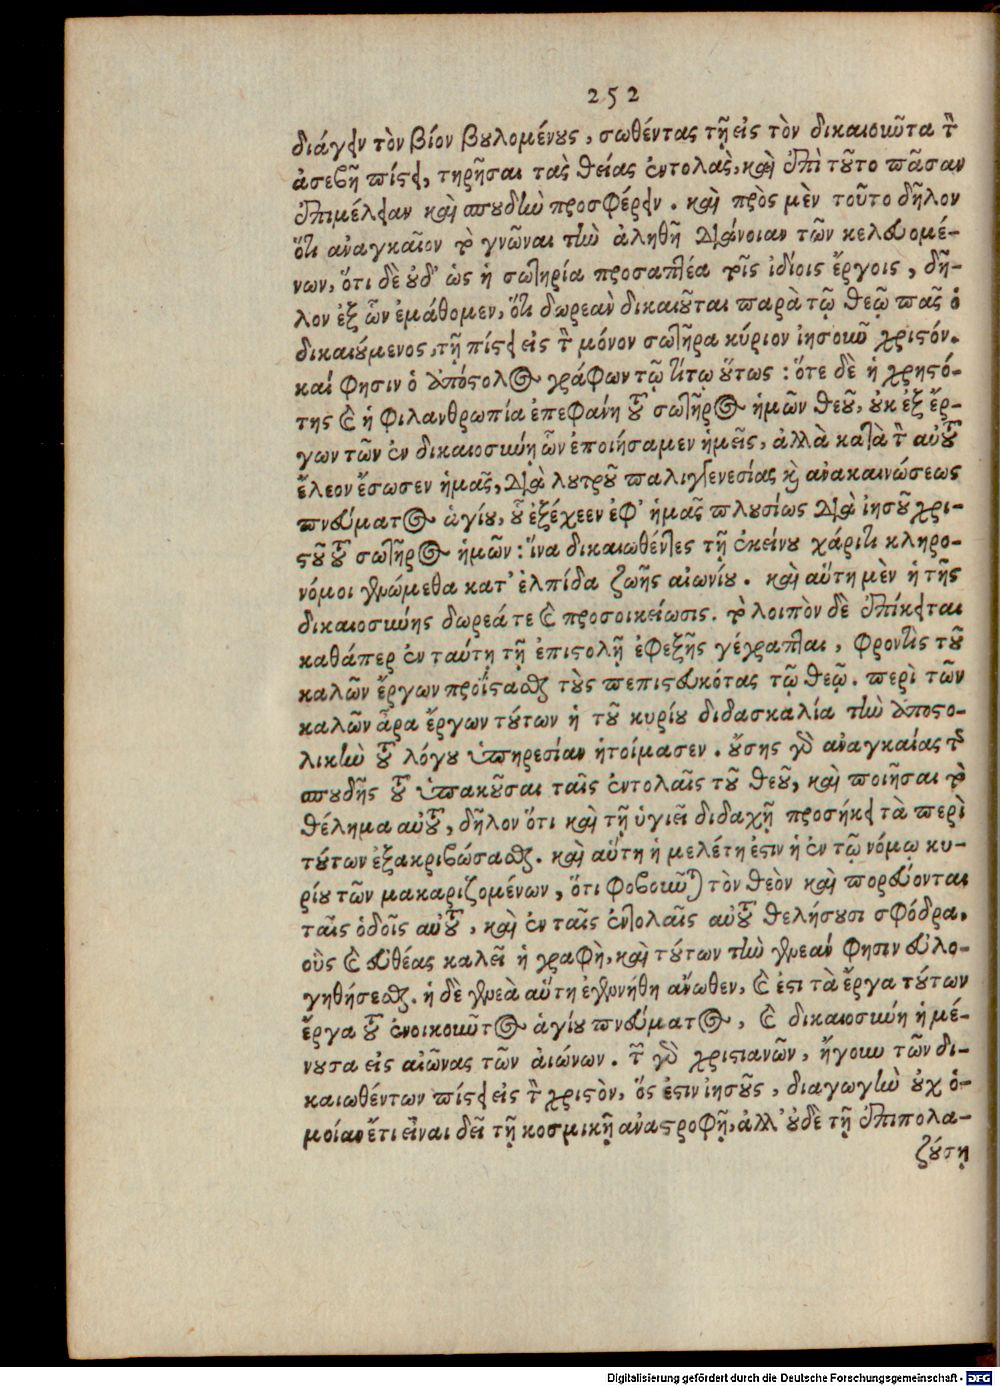 252
διάγειν τὸν βίον βουλομένους, σωθέντας τῇ εἰς τὸν δικαιοῦντα τὸν
ἀσεβῆ πίστει, τηρῆσαι τὰς θείας ἐντολὰς, καὶ ἐπὶ τοῦτο πᾶσαν
ἐπιμέλειαν καὶ σπουδὴν προσφέρειν. καὶ πρὸς μὲν τοῦτο δῆλον
ὅτι ἀναγκαῖον τὸ γνῶναι τὴν ἀληθῆ διάνοιαν τῶν κελευομέ-
νων, ὅτι δὲ οὐδ' ὡς ἡ σωτηρία προσαπτέα τοῖς ἰδίοις ἔργοις, δῆ-
λον ἐξ ὧν ἐμάθομεν, ὅτι δωρεὰν δικαιοῦται παρὰ τῷ θεῷ πᾶς ὁ
δικαιούμενος, τῇ πίστει εἰς τὸν μόνον σωτῆρα κύριον ἰησοῦν χριστόν.
καί φησιν ὁ ἀπόστολος γράφων τῷ τίτῳ οὕτως: ὅτε δὲ ἡ χρηστό-
της καὶ ἡ φιλανθρωπία ἐπεφάνη τοῦ σωτῆρος ἡμῶν θεοῦ, οὐκ ἐξ ἔρ-
γων τῶν ἐν δικαιοσύνῃ ὧν ἐποιήσαμεν ἡμεῖς, ἀλλὰ κατὰ τὸν αὐτοῦ
ἔλεον ἔσωσεν ἡμᾶς, διὰ λουτροῦ παλιγγενεσίας καὶ ἀνακαινώσεως
πνεύματος ἁγίου, οὗ ἐξέχεεν ἐφ' ἡμᾶς πλουσίως διὰ ἰησοῦ χρι-
στοῦ τοῦ σωτῆρος ἡμῶν: ἵνα δικαιωθέντες τῇ ἐκείνου χάριτι κληρο-
νόμοι γενώμεθα κατ' ἐλπίδα ζωῆς αἰωνίου. καὶ αὕτη μὲν ἡ τῆς
δικαιοσύνης δωρεά τε καὶ προσοικείωσις. τὸ λοιπὸν δὲ ἐπίκειται
καθάπερ ἐν ταύτῃ τῇ ἐπιστολῇ ἐφεξῆς γέγραπται, φροντὶς τοῦ
καλῶν ἔργων προΐστασθαι τοὺς πεπιστευκότας τῷ θεῷ. περὶ τῶν
καλῶν ἆρα ἔργων τούτων ἡ τοῦ κυρίου διδασκαλία τὴν ἀποστο-
λικὴν τοῦ λόγου ὑπηρεσίαν ἡτοίμασεν. οὔσης γὰρ ἀναγκαίας τῆς
σπουδῆς τοῦ ὑπακοῦσαι ταῖς ἐντολαῖς τοῦ θεοῦ, καὶ ποιῆσαι τὸ
θέλημα αὐτοῦ, δῆλον ὅτι καὶ τῇ ὑγιεῖ διδαχῇ προσήκει τὰ περὶ
τούτων ἐξακριβώσασθαι. καὶ αὕτη ἡ μελέτη ἐστιν ἡ ἐν τῷ νόμῳ κυ-
ρίου τῶν μακαριζομένων, ὅτι φοβοῦνται τὸν θεὸν καὶ πορεύονται
ταῖς ὁδοῖς αὐτοῦ, καὶ ἐν ταῖς ἐντολαῖς αὐτοῦ θελήσουσι σφόδρα.
οὓς καὶ εὐθέας καλεῖ ἡ γραφὴ, καὶ τούτων τὴν γενεάν φησιν εὐλο-
γηθήσεσθαι. ἡ δὲ γενεὰ αὕτη ἐγεννήθη ἄνωθεν, καὶ ἐστι τὰ ἔργα τούτων
ἔργα τοῦ ἐνοικοῦντος ἁγίου πνεύματος, καὶ δικαιοσύνη ἡ μέ-
νουσα εἰς αἰῶνας τῶν ἀιώνων. τὴν γὰρ χριστιανῶν, ἤγουν τῶν δι-
καιωθέντων πίστει εἰς τὸν χριστὸν, ὅς ἐστιν ἰησοῦς, διαγωγὴν οὐχ ὁ-
μοίαν ἔτι εἶναι δεῖ τῇ κοσμικῇ ἀναστροφῇ, ἀλλ' οὐδὲ τῇ ἐπιπολα-
ζούσῃ
Digitalisierung gefördert durch die Deutsche Forschungsgemeinschaft - DFG